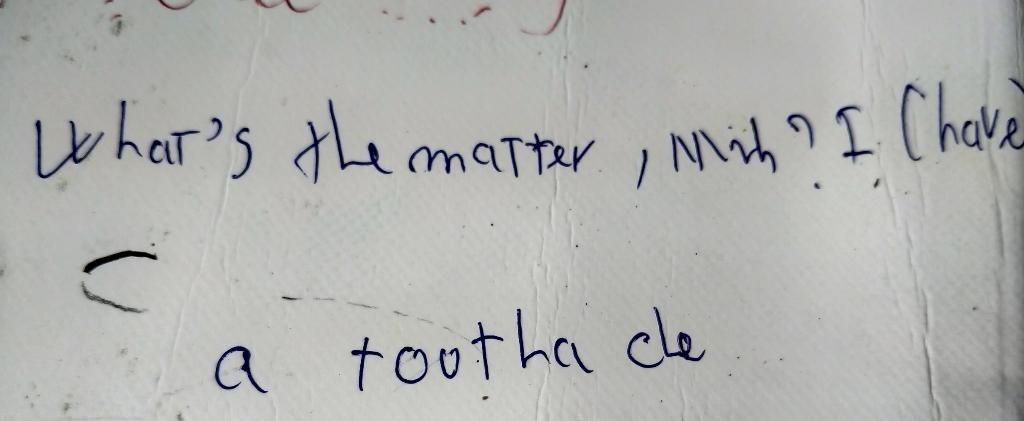 What's the matter, Minh? I (have)
a toothache